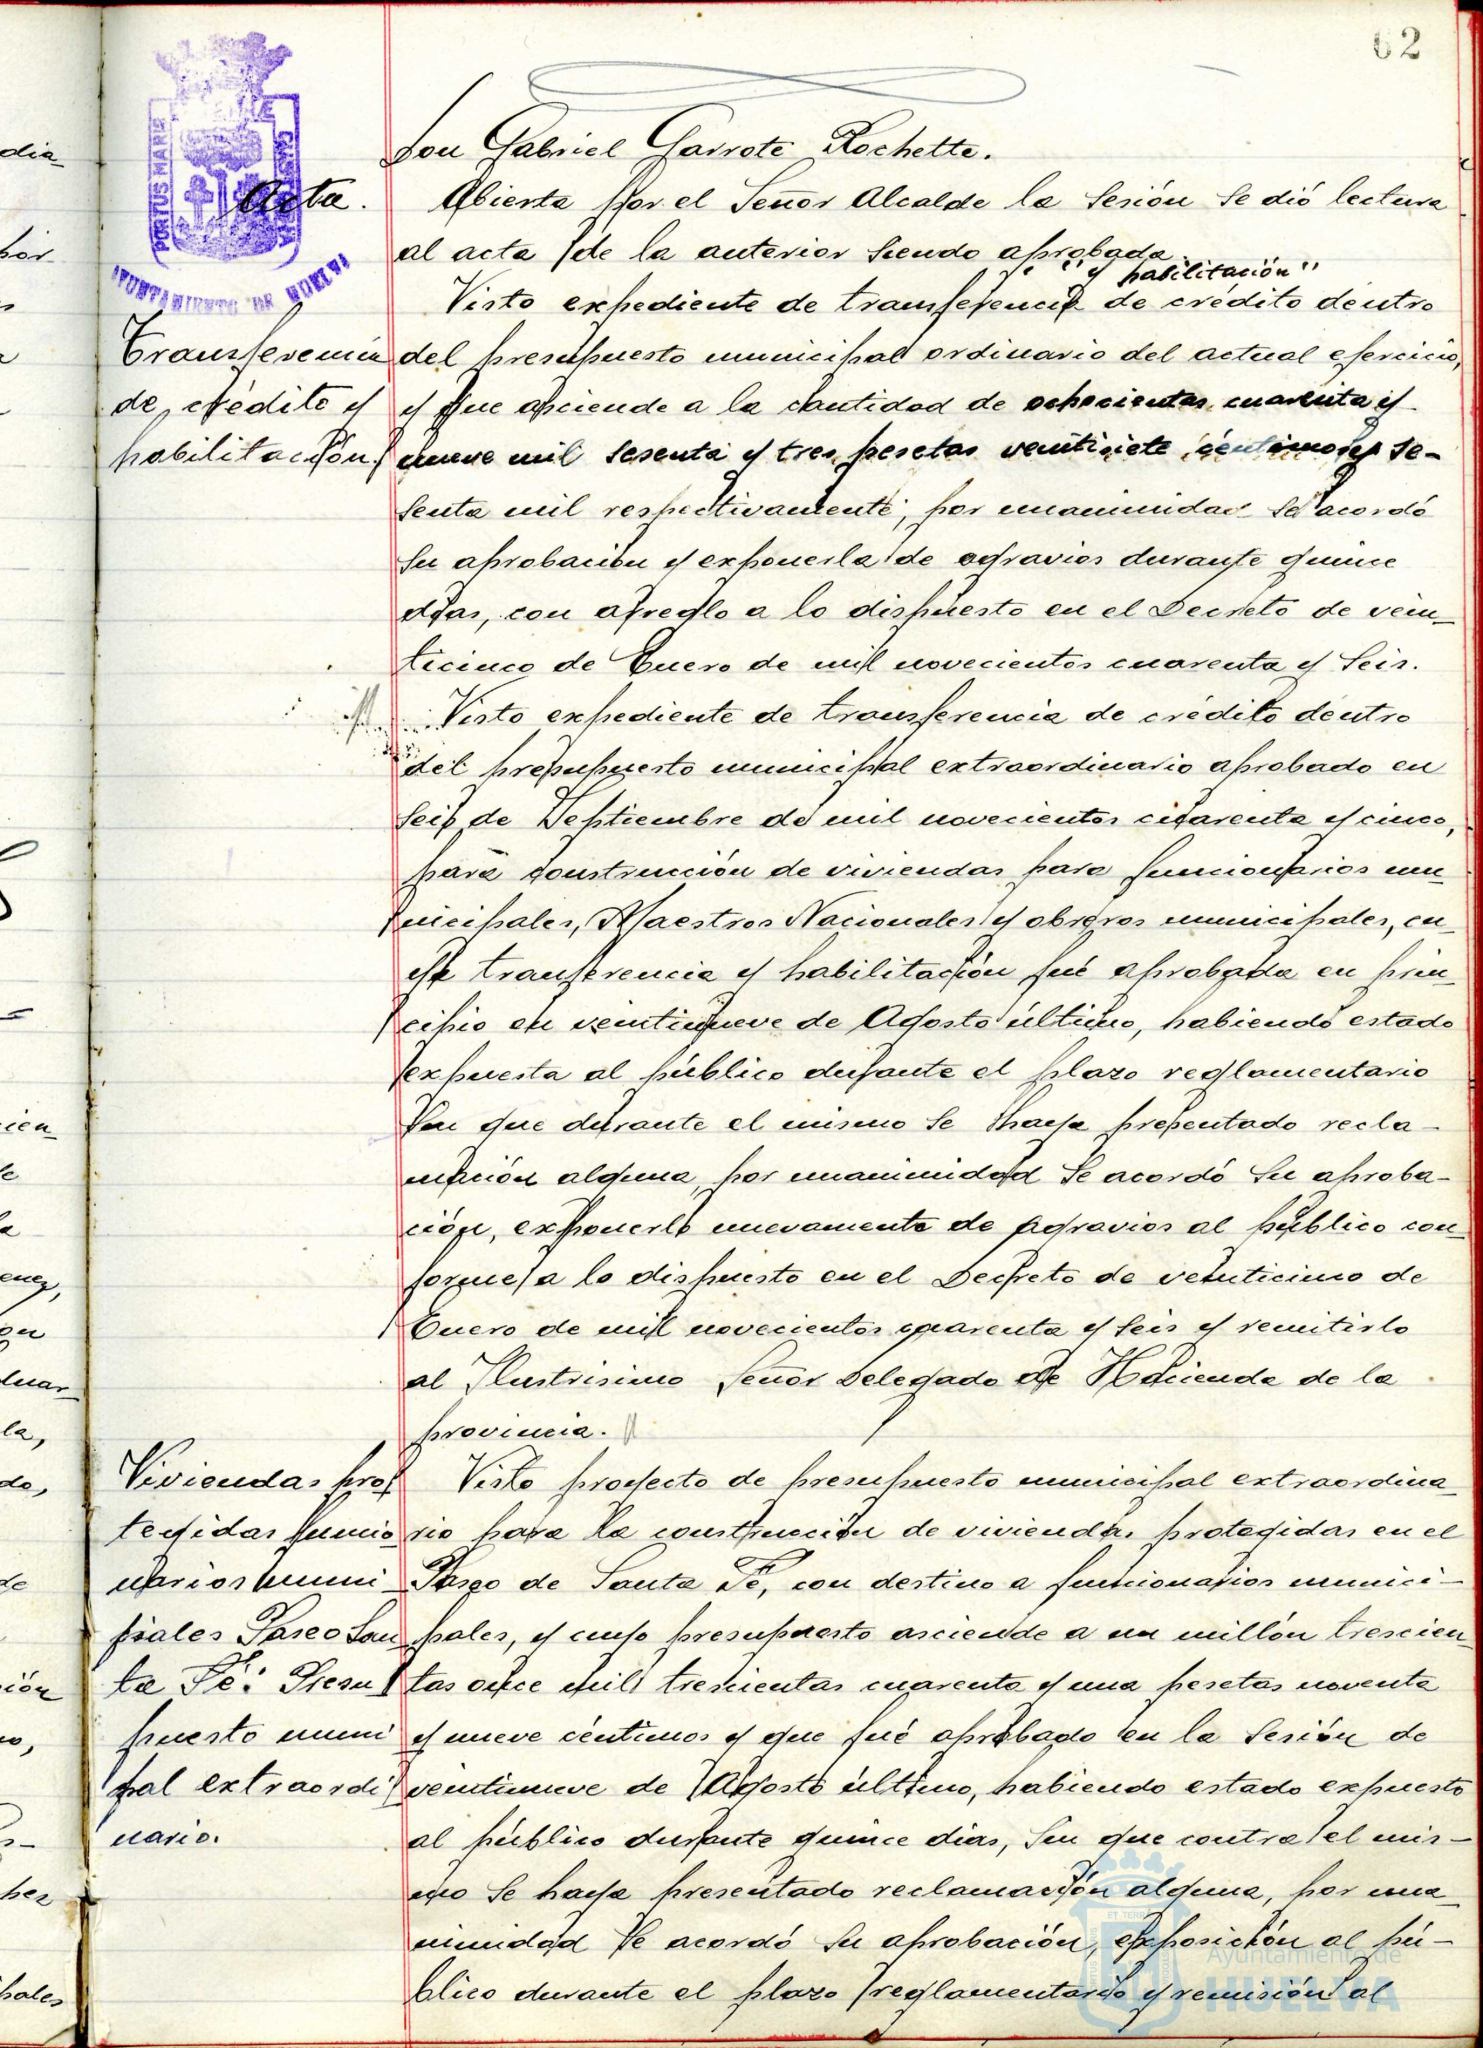 62
PORTUS MARIS
AYUNTAMIENTO DE HUELVA
Don Gabriel Garrote Rochette.
Acta.
Abierta por el Señor Alcalde la Sesión se dió lectura
al acta de la anterior siendo aprobada.
"y habilitación"
Visto expediente de transferencia de crédito dentro
Transferencia
de crédito y
habilitación
del presupuesto municipal ordinario del actual ejercicio,
y que asciende a la cantidad de ochocientas cuarenta y
nueve mil sesenta y tres pesetas veintisiete céntimos y se-
senta mil respectivamente, por unanimidad se acordó
su aprobación y exponerla de agravios durante quince
días, con arreglo a lo dispuesto en el Decreto de vein-
ticinco de Enero de mil novecientos cuarenta y seis.
Visto expediente de transferencia de crédito dentro
del presupuesto municipal extraordinario aprobado en
seis de Septiembre de mil novecientos cuarenta y cinco,
para construcción de viviendas para funcionarios mu-
nicipales, Maestros Nacionales y obreros municipales, cu-
ya transferencia y habilitación fué aprobada en prin-
cipio en veintinueve de Agosto último, habiendo estado
expuesta al público durante el plazo reglamentario
sin que durante el mismo se haya presentado recla-
mación alguna, por unanimidad se acordó su aproba-
ción, exponerlo nuevamente de agravios al público con-
forme a lo dispuesto en el Decreto de veinticinco de
Enero de mil novecientos cuarenta y seis y remitirlo
al Ilustrisimo Señor Delegado de Hacienda de la
provincia.
Viviendas pro-
tegidas funcio
narios muni-
pales Paseo San
ta Fé: Presu
puesto muni
pal extraordi
nario.
Visto proyecto de presupuesto municipal extraordina-
rio para la construcción de viviendas protegidas en el
Paseo de Santa Fé, con destino a funcionarios munici-
pales, y cuyo presupuesto asciende a un millón trescien-
tas once mil trescientas cuarenta y una pesetas noventa
y nueve céntimos y que fué aprobado en la Sesión de
veintinueve de Agosto último, habiendo estado expuesto
al público durante quince días, sin que contra el mis-
mo se haya presentado reclamación alguna, por una-
nimidad se acordó su aprobación, exposición al pú-
blico durante el plazo reglamentario y remisión al
Ayuntamiento de
HUELVA